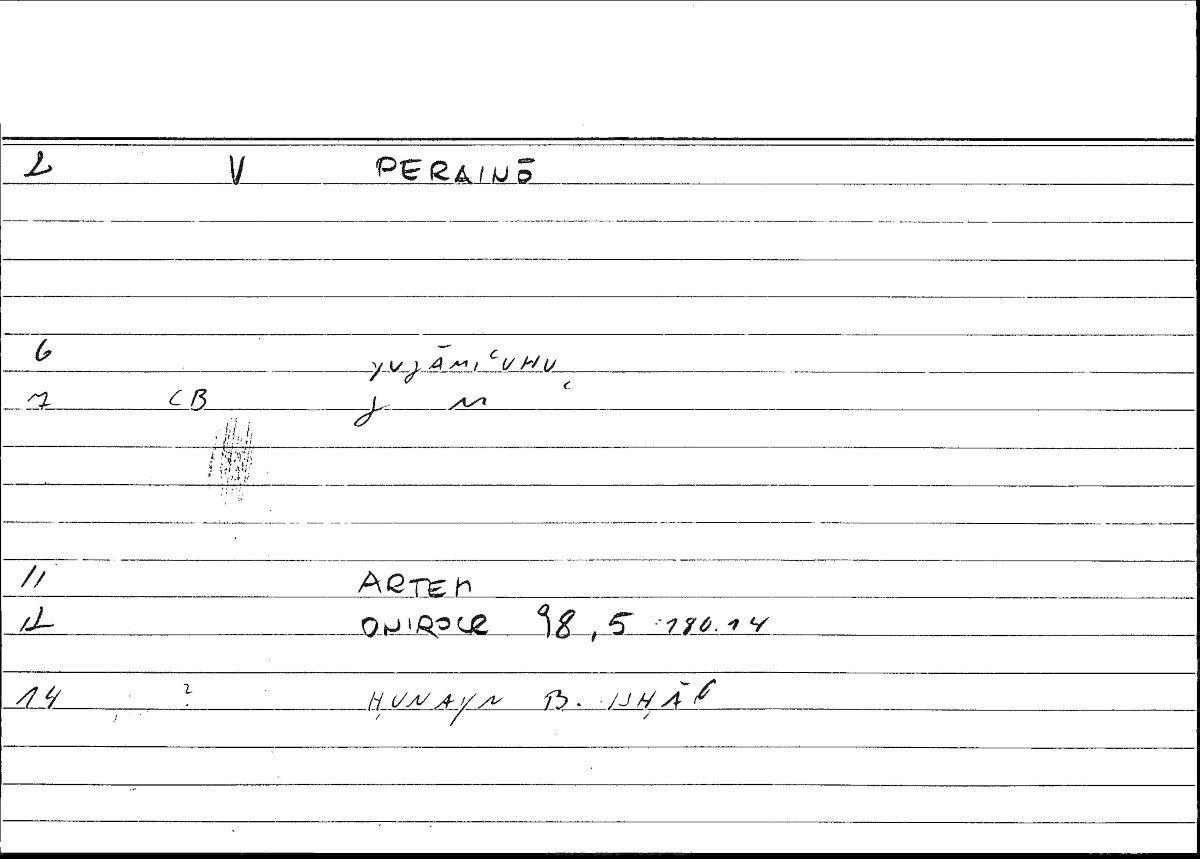 2 V PERAINŌ
6 yuǧāmiʿUHU
7 CB ǧ M ʿ
11 ARTEM
12 ONIROCR 98,5 180.14
14 ? ḤUNAYN B. ISḤĀQ